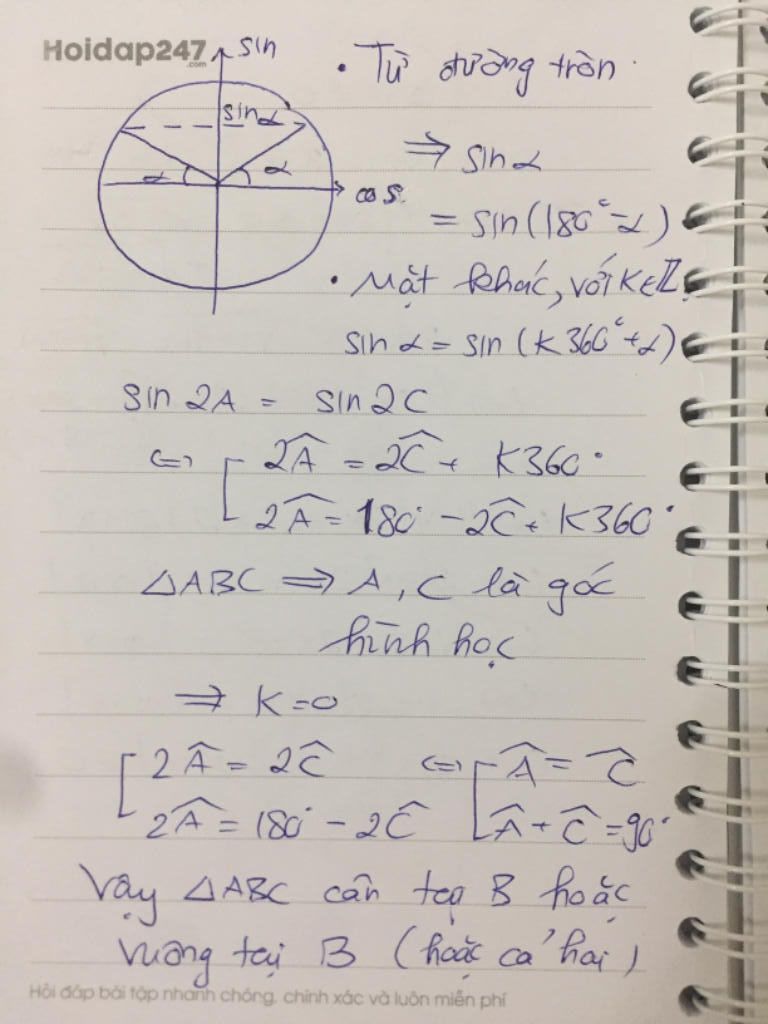 Hoidap247
.com
sin
• Từ đường tròn
sinα
α α
cos
⇒ sinα
= sin(180° - α)
• Mặt khác, với K∈Z,
sin α = sin (K360° + α)
sin 2A = sin 2C
⇔ [ 2Â = 2Ĉ + K360°
2Â = 180° - 2Ĉ + K360°
△ABC ⇒ A, C là góc
hình học
⇒ K = 0
[ 2Â = 2Ĉ ⇔ [ Â = Ĉ
2Â = 180° - 2Ĉ Â + Ĉ = 90°
Vậy △ABC cân tại B hoặc
vuông tại B (hoặc cả hai)
Hỏi đáp bài tập nhanh chóng, chính xác và luôn miễn phí